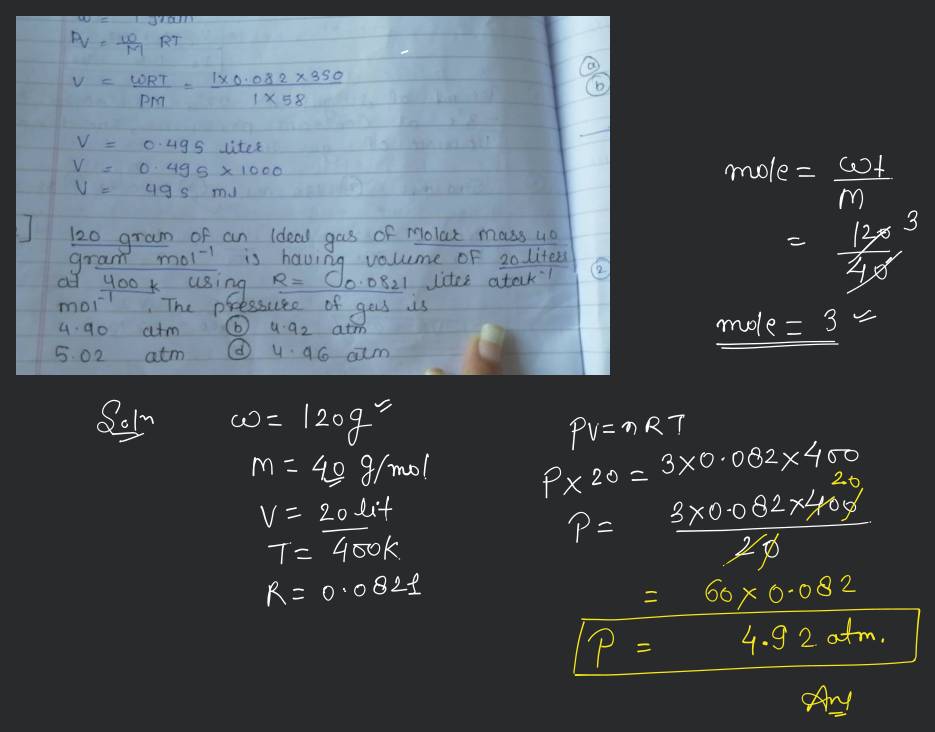 w = 1 gram
PV = w/M RT
V = WRT/PM = 1x0.082 x350/1 x 58
V = 0.495 liter
V = 0.495 x 1000
V = 495 ml
(a)
(b)
] 120 gram of an Ideal gas of Molar mass 40
gram mol⁻¹ is having volume of 20 liters
at 400 k using R = 0.0821 liter atm k⁻¹
mol⁻¹. The pressure of gas is
4.90 atm (b) 4.92 atm
5.02 atm (d) 4.96 atm
(2)
mole = wt/M
= 120/40 3
mole = 3 ✓
Soln
w = 120g ✓
M = 40 g/mol
V = 20 lit
T = 400k
R = 0.0821
PV = nRT
P x 20 = 3x0.082x400
P = 3x0.082x400/20 20
= 60 x 0.082
P = 4.92 atm.
Ans